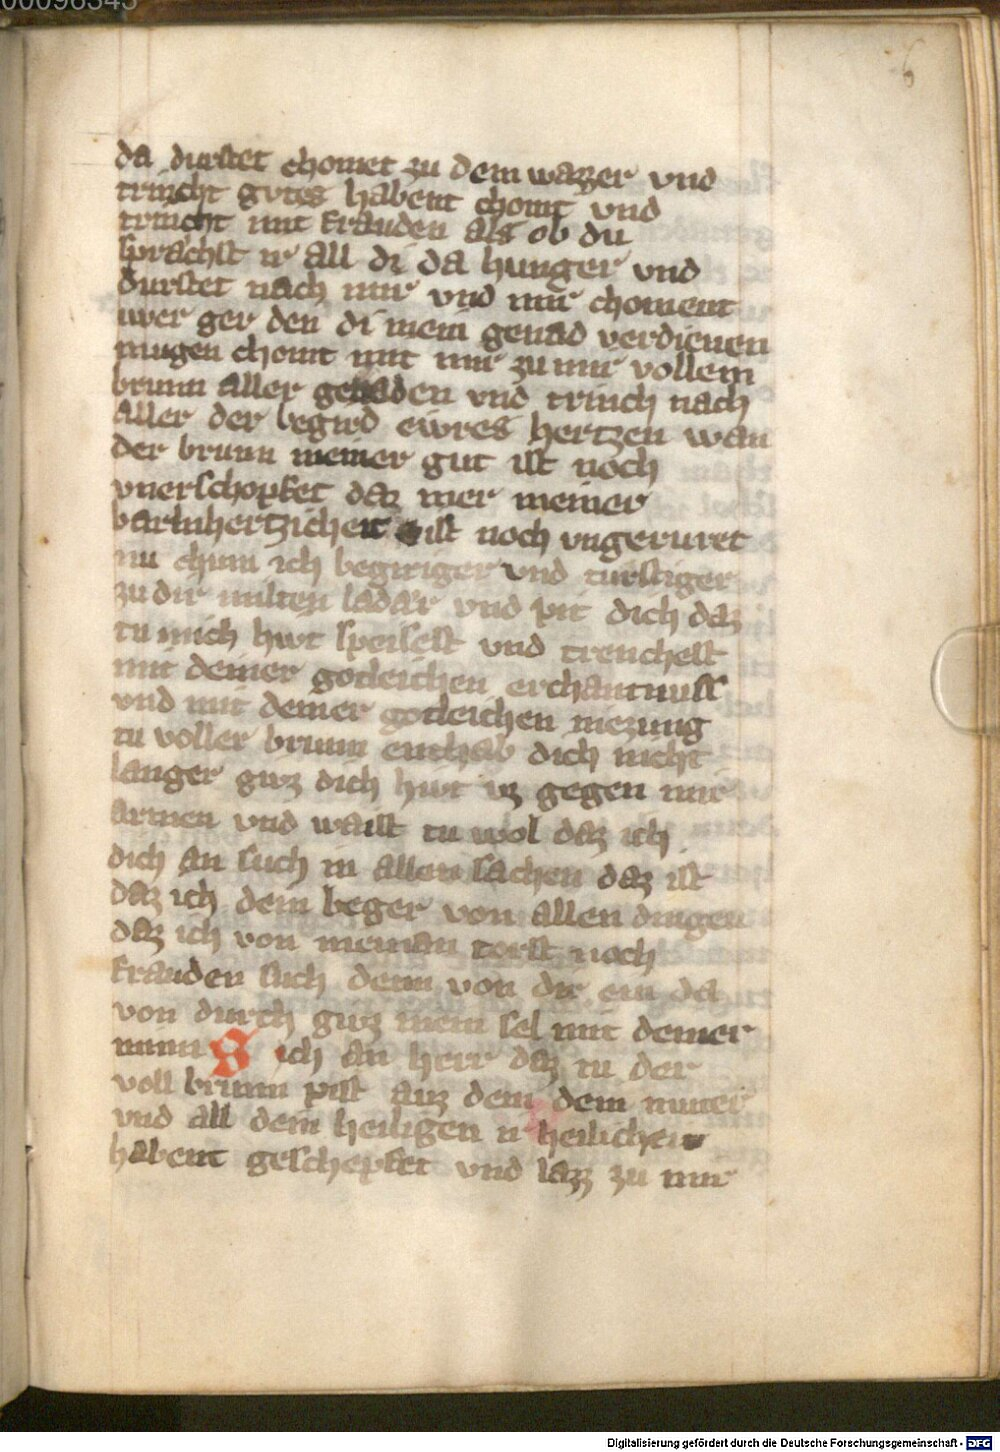 00096345
6
da durstet chomet zu dem wazzer vnd
trincht gvtes habent chomt vnd
trincht mit frauden als ob du
sprachst ir all di da hunger vnd
durstet nach mir vnd mir choment
wer ger den di mein genad verdienen
mugen chomt mit mir zu mir vollem
brunn aller genaden vnd trinch nach
aller der begird ewres hertzen wan
der brunn meiner gut ist noch
vnerschopfet daz mer meiner
barmhertzichen ist noch vngeruret
nu chum ich begiriger vnd turstiger
zu dir milten ladar vnd pit dich daz
tu mich hwt speisest vnd trenchest
mit deiner gotleichen erchantnuss
vnd mit deiner gotleichen niezung
tu voller brunn enthab dich nicht
langer gwz dich hwt vz gegen mir
armen vnd waist tu wol daz ich
dich an such in allen sachen daz ist
daz ich dein beger von allen dingen
daz ich von nieman torst noch
frauden such denn von dir ein da
von durch gwz mein sel mit deiner
minn S ich an herr daz tu der
voll brunn pist auz dem dein muter
vnd all dein heiligen ir heilichen
habent geschepfet vnd lazz zu mir
Digitalisierung gefördert durch die Deutsche Forschungsgemeinschaft - DFG